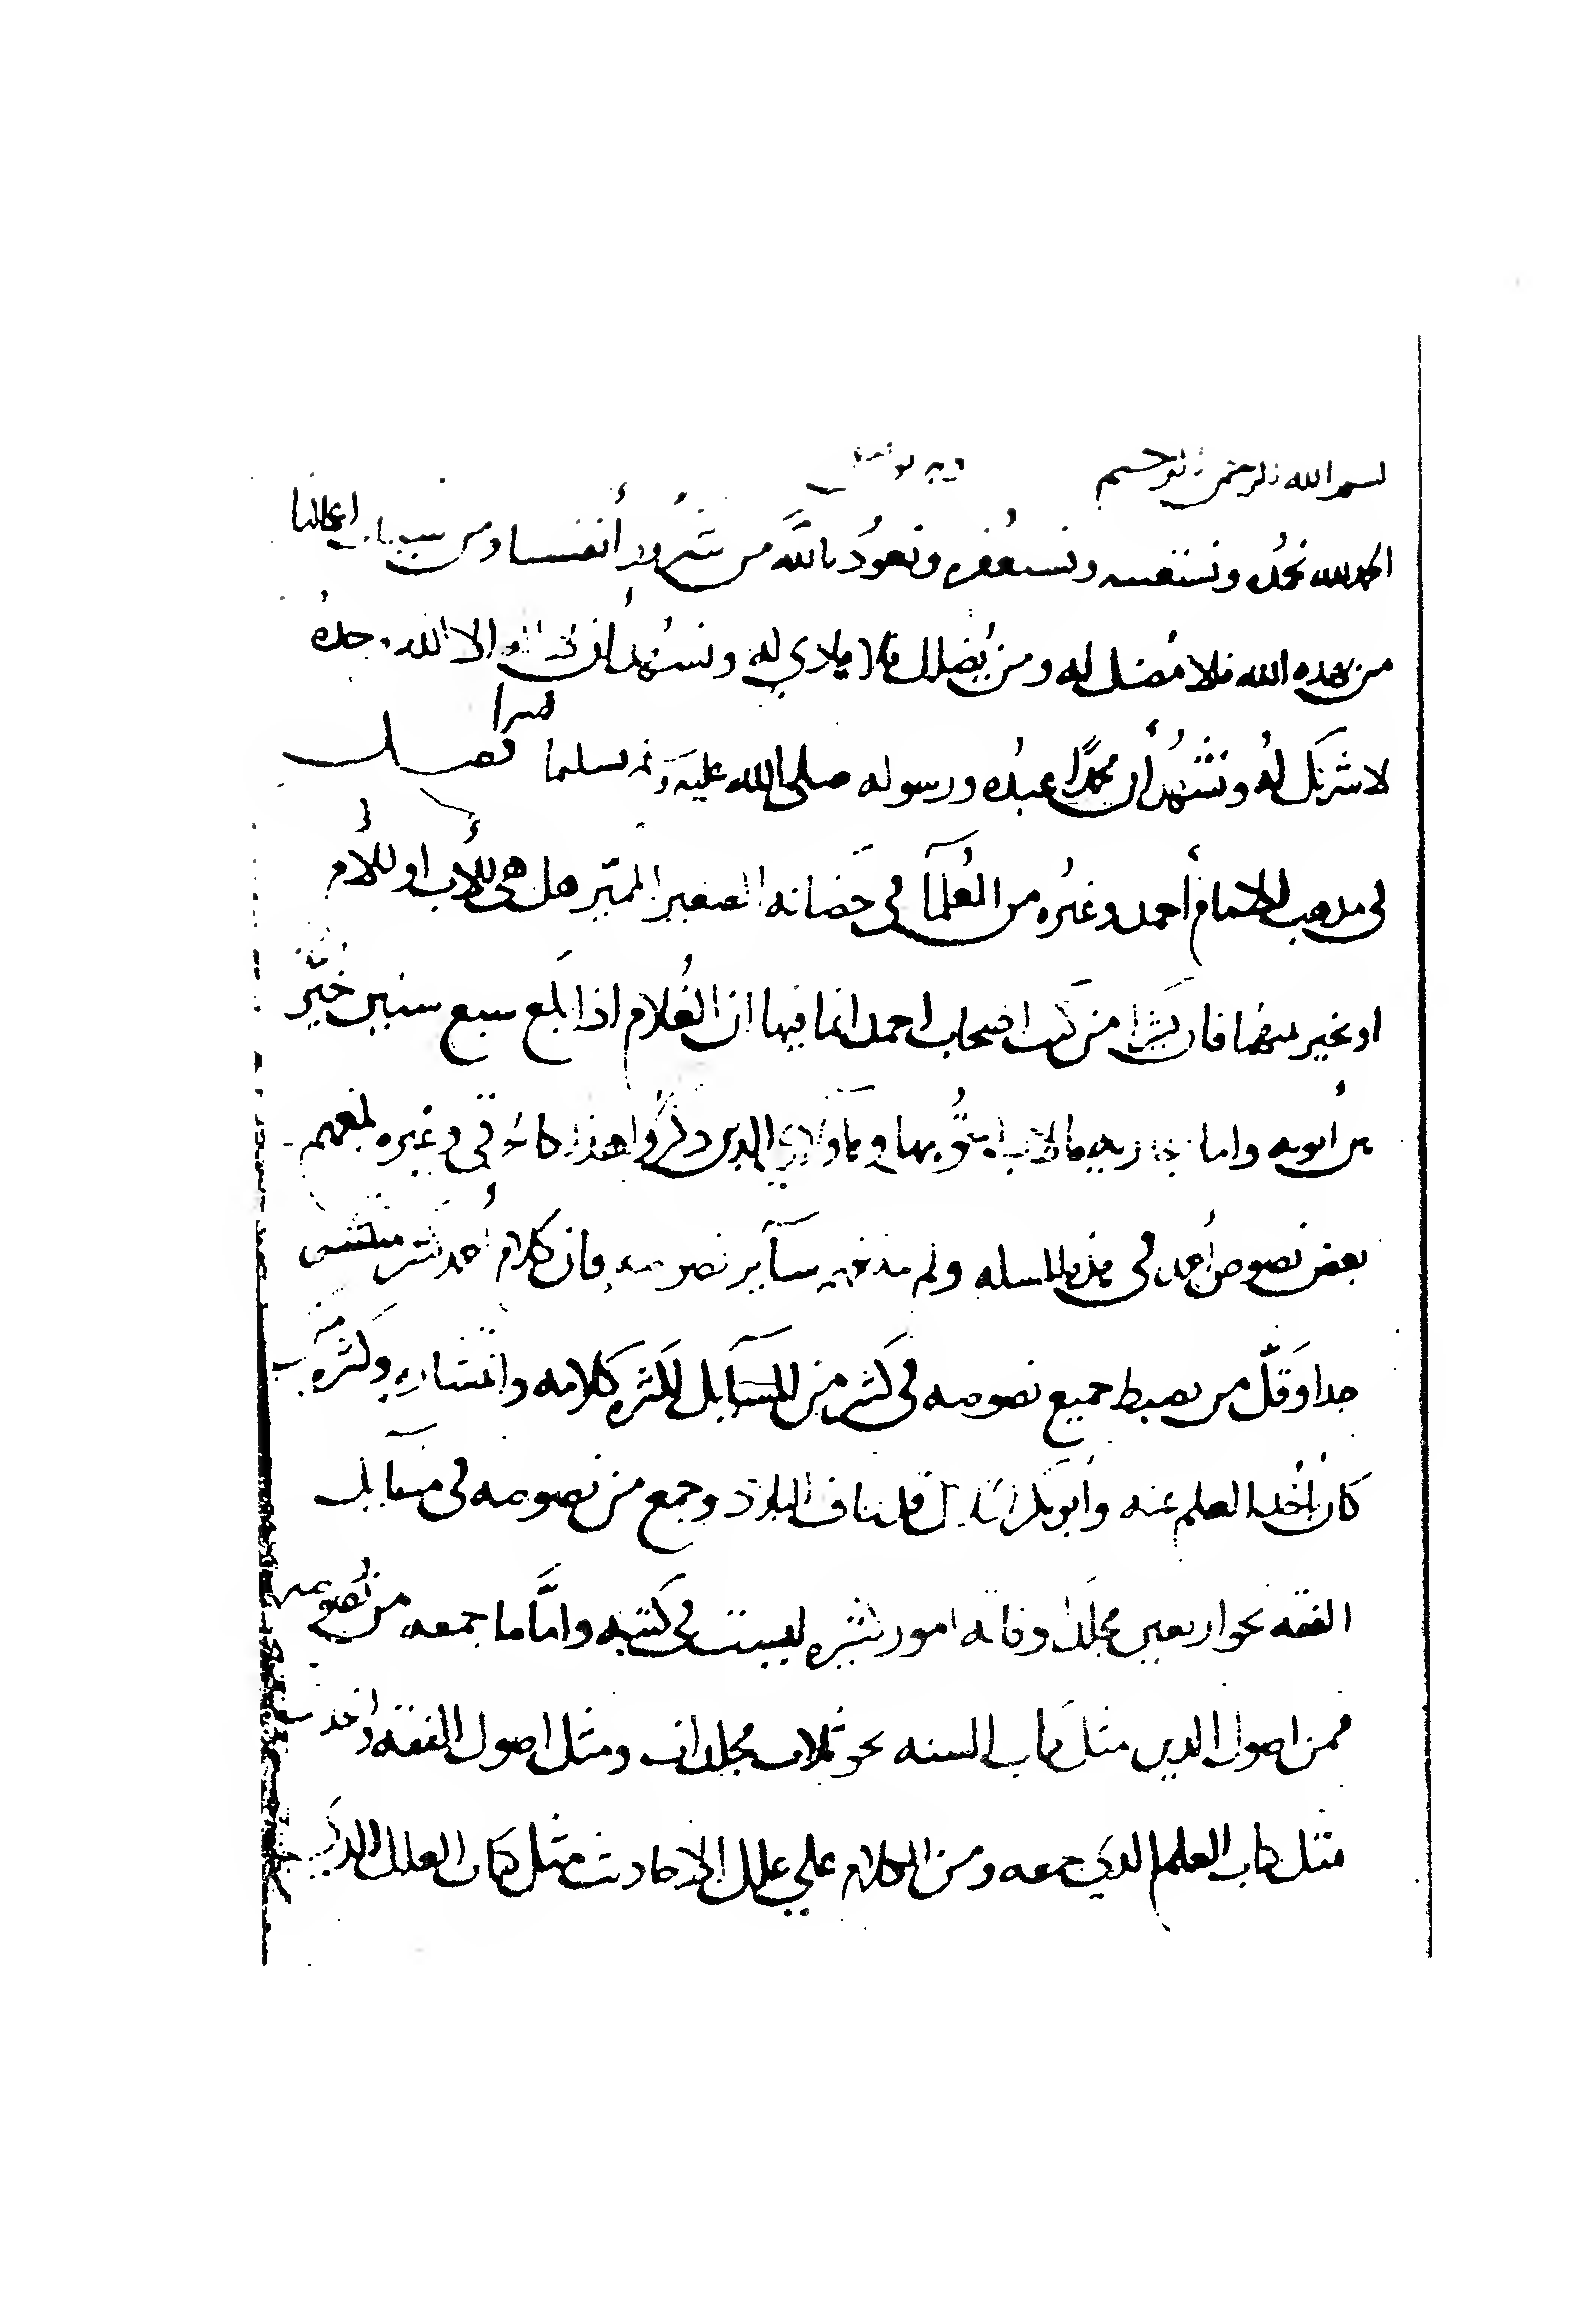 بسم الله الرحمن الرحيم
الحمد لله نحمده ونستعينه ونستغفره ونعوذ بالله من شرور أنفسنا ومن سيئات اعمالنا
من يهده الله فلا مضل له ومن يُضلل فلا هادي له ونشهد أن لا اله الا الله وحده
لا شريك له ونشهد أن محمدًا عبده ورسوله صلى الله عليه وسلم تسليما كثيرا فصل
في مذهب الامام أحمد وغيره من العُلمآ في حَضانه الصغير المميّز هل هي للأب او للأم
او يخير بينهما فان كثيرا من كتب اصحاب احمد انما فيها ان الغُلام اذا بلغ سبع سنين خُيّر
بين أبويه واما الجاريه فالاب أحق بها وهاولاي الذين ذكروا هذا كالخرقي وغيره بلغهم
بعض نصوص أحمد في هذه المسله ولم يبلغهم سآير نصوصه فان كلام أحمد كثير منتشر
جدا وَقَلّ من يضبط جميع نصوصه في كثير من المسآيل لكثره كلامه وانتشاره وكَثْره من
كان يأخذ العلم عنه وأبو بكر الخلال قد طاف البلاد وجمع من نصوصه في مسآيل
الفقه نحو اربعين مجلدا وفاته امور كثيره ليست في كتبه وامّا ما جمعه من نصوصه
فمن اصول الدين مثل كتاب السنه نحو ثلاث مجلدات ومثل اصول الفقه والحديث
مثل كتاب العلم الذي جمعه ومن الكلام علي علل الاحاديث مثل كتاب العلل الذي